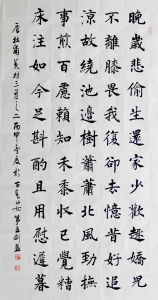 晚歲迫偷生還家少歡趣嬌兒
不離膝畏我復卻去憶昔好追
涼故繞池邊樹蕭蕭北風勁撫
事煎百慮賴知禾黍收已覺糟
床注如今足斟酌且用慰遲暮
唐杜甫羌村三首之二丙申